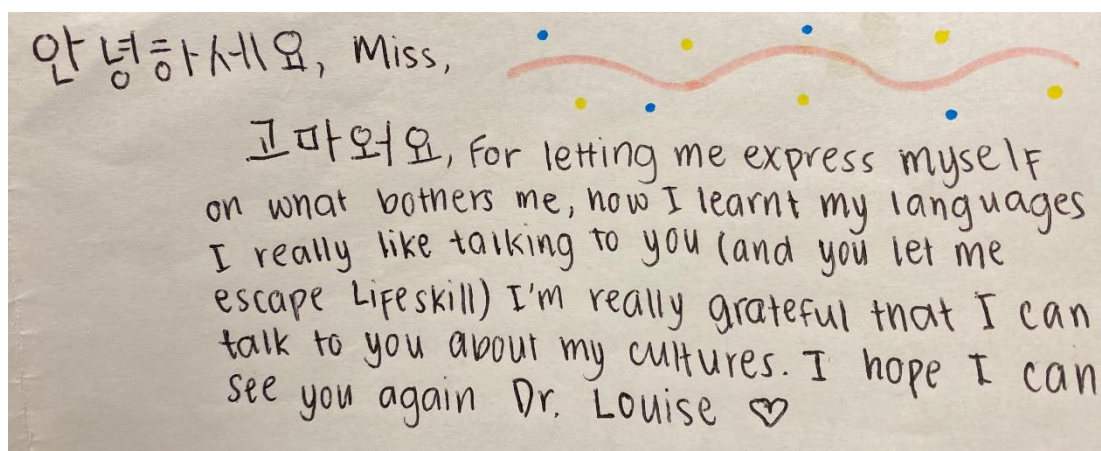 안녕하세요, Miss,
고마워요, For letting me express myself
on what bothers me, how I learnt my languages
I really like talking to you (and you let me
escape Lifeskill) I'm really grateful that I can
talk to you about my cultures. I hope I can
see you again Dr. Louise ♡